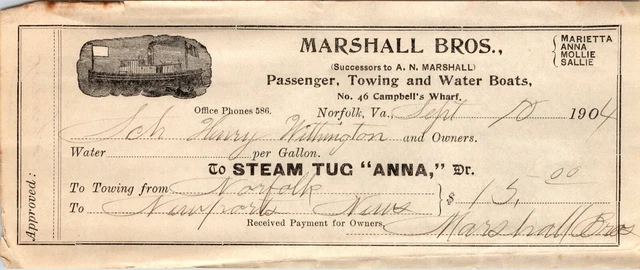 MARSHALL BROS.,
MARIETTA
ANNA
MOLLIE
SALLIE
(Successors to A. N. MARSHALL)
Passenger, Towing and Water Boats,
No. 46 Campbell's Wharf,
Office Phones 586. Norfolk, Va. Sept 10 1904
Sch Henry Withington and Owners.
Water per Gallon.
To STEAM TUG "ANNA," Dr.
To Towing from Norfolk
To Newports News
$ 15.00
Received Payment for Owners, Marshall Bros
Approved: